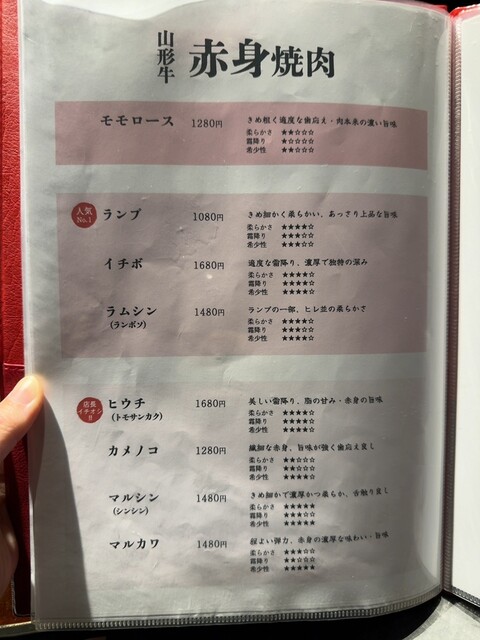 山形牛 赤身焼肉
モモロース 1280円 きめ粗く適度な歯応え・肉本来の濃い旨味
柔らかさ ★★☆☆☆
霜降り ★☆☆☆☆
希少性 ★★☆☆☆
人気 No.1
ランプ 1080円 きめ細かく柔らかい、あっさり上品な旨味
柔らかさ ★★★★☆
霜降り ★★★☆☆
希少性 ★★★☆☆
イチボ 1680円 適度な霜降り、濃厚で独特の深み
柔らかさ ★★★★☆
霜降り ★★★★☆
希少性 ★★★★☆
ラムシン 1480円 ランプの一部、ヒレ並の柔らかさ
(ランボソ)
柔らかさ ★★★★☆
霜降り ★★★☆☆
希少性 ★★★★☆
店長 イチオシ!!
ヒウチ 1680円 美しい霜降り、脂の甘み・赤身の旨味
(トモサンカク)
柔らかさ ★★★★☆
霜降り ★★★★☆
希少性 ★★★★☆
カメノコ 1280円 繊細な赤身、旨味が強く歯応え良し
柔らかさ ★★☆☆☆
霜降り ★★☆☆☆
希少性 ★★★★☆
マルシン 1480円 きめ細かで濃厚かつ柔らか、舌触り良し
(シンシン)
柔らかさ ★★★★★
霜降り ★★★☆☆
希少性 ★★★★★
マルカワ 1480円 程よい弾力、赤身の濃厚な味わい・旨味
柔らかさ ★★★☆☆
霜降り ★★★☆☆
希少性 ★★★★★